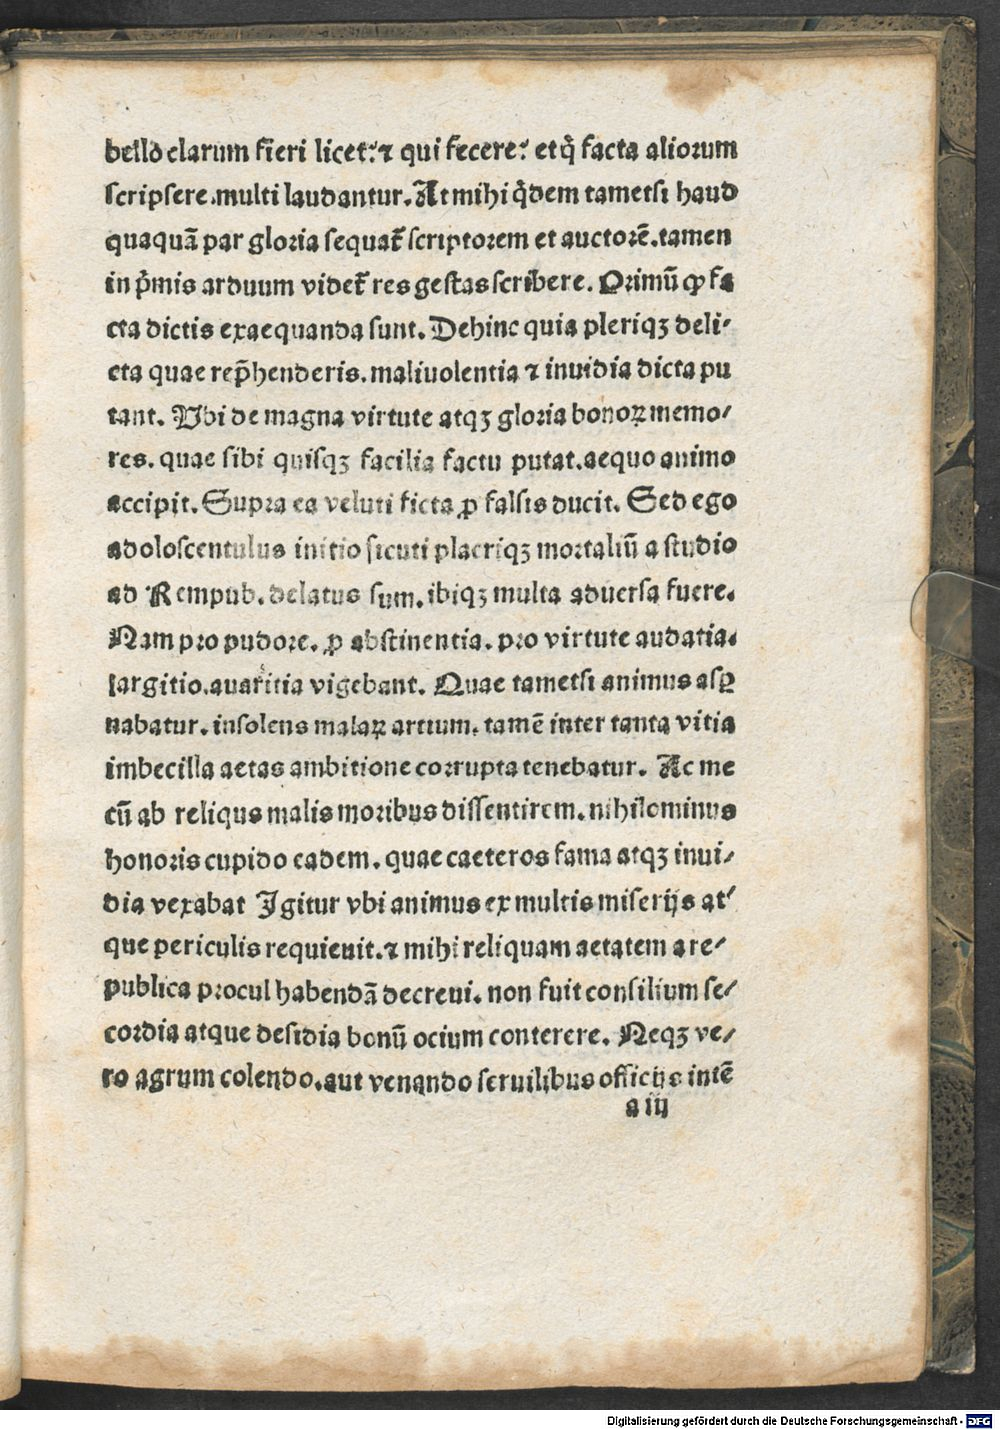 bello clarum fieri licet: ⁊ qui fecere: et q̃ facta aliorum
scripsere. multi laudantur. At mihi q̃dem tametsi haud
quaquã par gloria sequat᷑ scriptorem et auctorẽ. tamen
in p̃mis arduum videt᷑ res gestas scribere. Primũ ꝙ fa
cta dictis exaequanda sunt. Dehinc quia pleriqꝫ deli⸗
cta quae rep̃henderis. maliuolentia ⁊ inuidia dicta pu
tant. Vbi de magna virtute atqꝫ gloria bonoꝝ memo⸗
res. quae sibi quisqꝫ facilia factu putat. aequo animo
accipit. Supra ea veluti ficta ꝓ falsis ducit. Sed ego
adoloscentulus initio sicuti plaeriqꝫ mortaliũ a studio
ad Rempub. delatus sum. ibiqꝫ multa aduersa fuere.
Nam pro pudore. ꝓ abstinentia. pro virtute audatia.
largitio. auaritia vigebant. Quae tametsi animus asꝑ
nabatur. insolens malaꝝ artium. tamẽ inter tanta vitia
imbecilla aetas ambitione corrupta tenebatur. Ac me
cũ ab reliqus malis moribus dissentirem. nihilominus
honoris cupido eadem. quae caeteros fama atqꝫ inui⸗
dia vexabat Igitur vbi animus ex multis miserijs at⸗
que periculis requieuit. ⁊ mihi reliquam aetatem a re⸗
publica procul habendã decreui. non fuit consilium se⸗
cordia atque desidia bonũ ocium conterere. Neqꝫ ve⸗
ro agrum colendo. aut venando seruilibus officijs intẽ
a iij
Digitalisierung gefördert durch die Deutsche Forschungsgemeinschaft - DFG